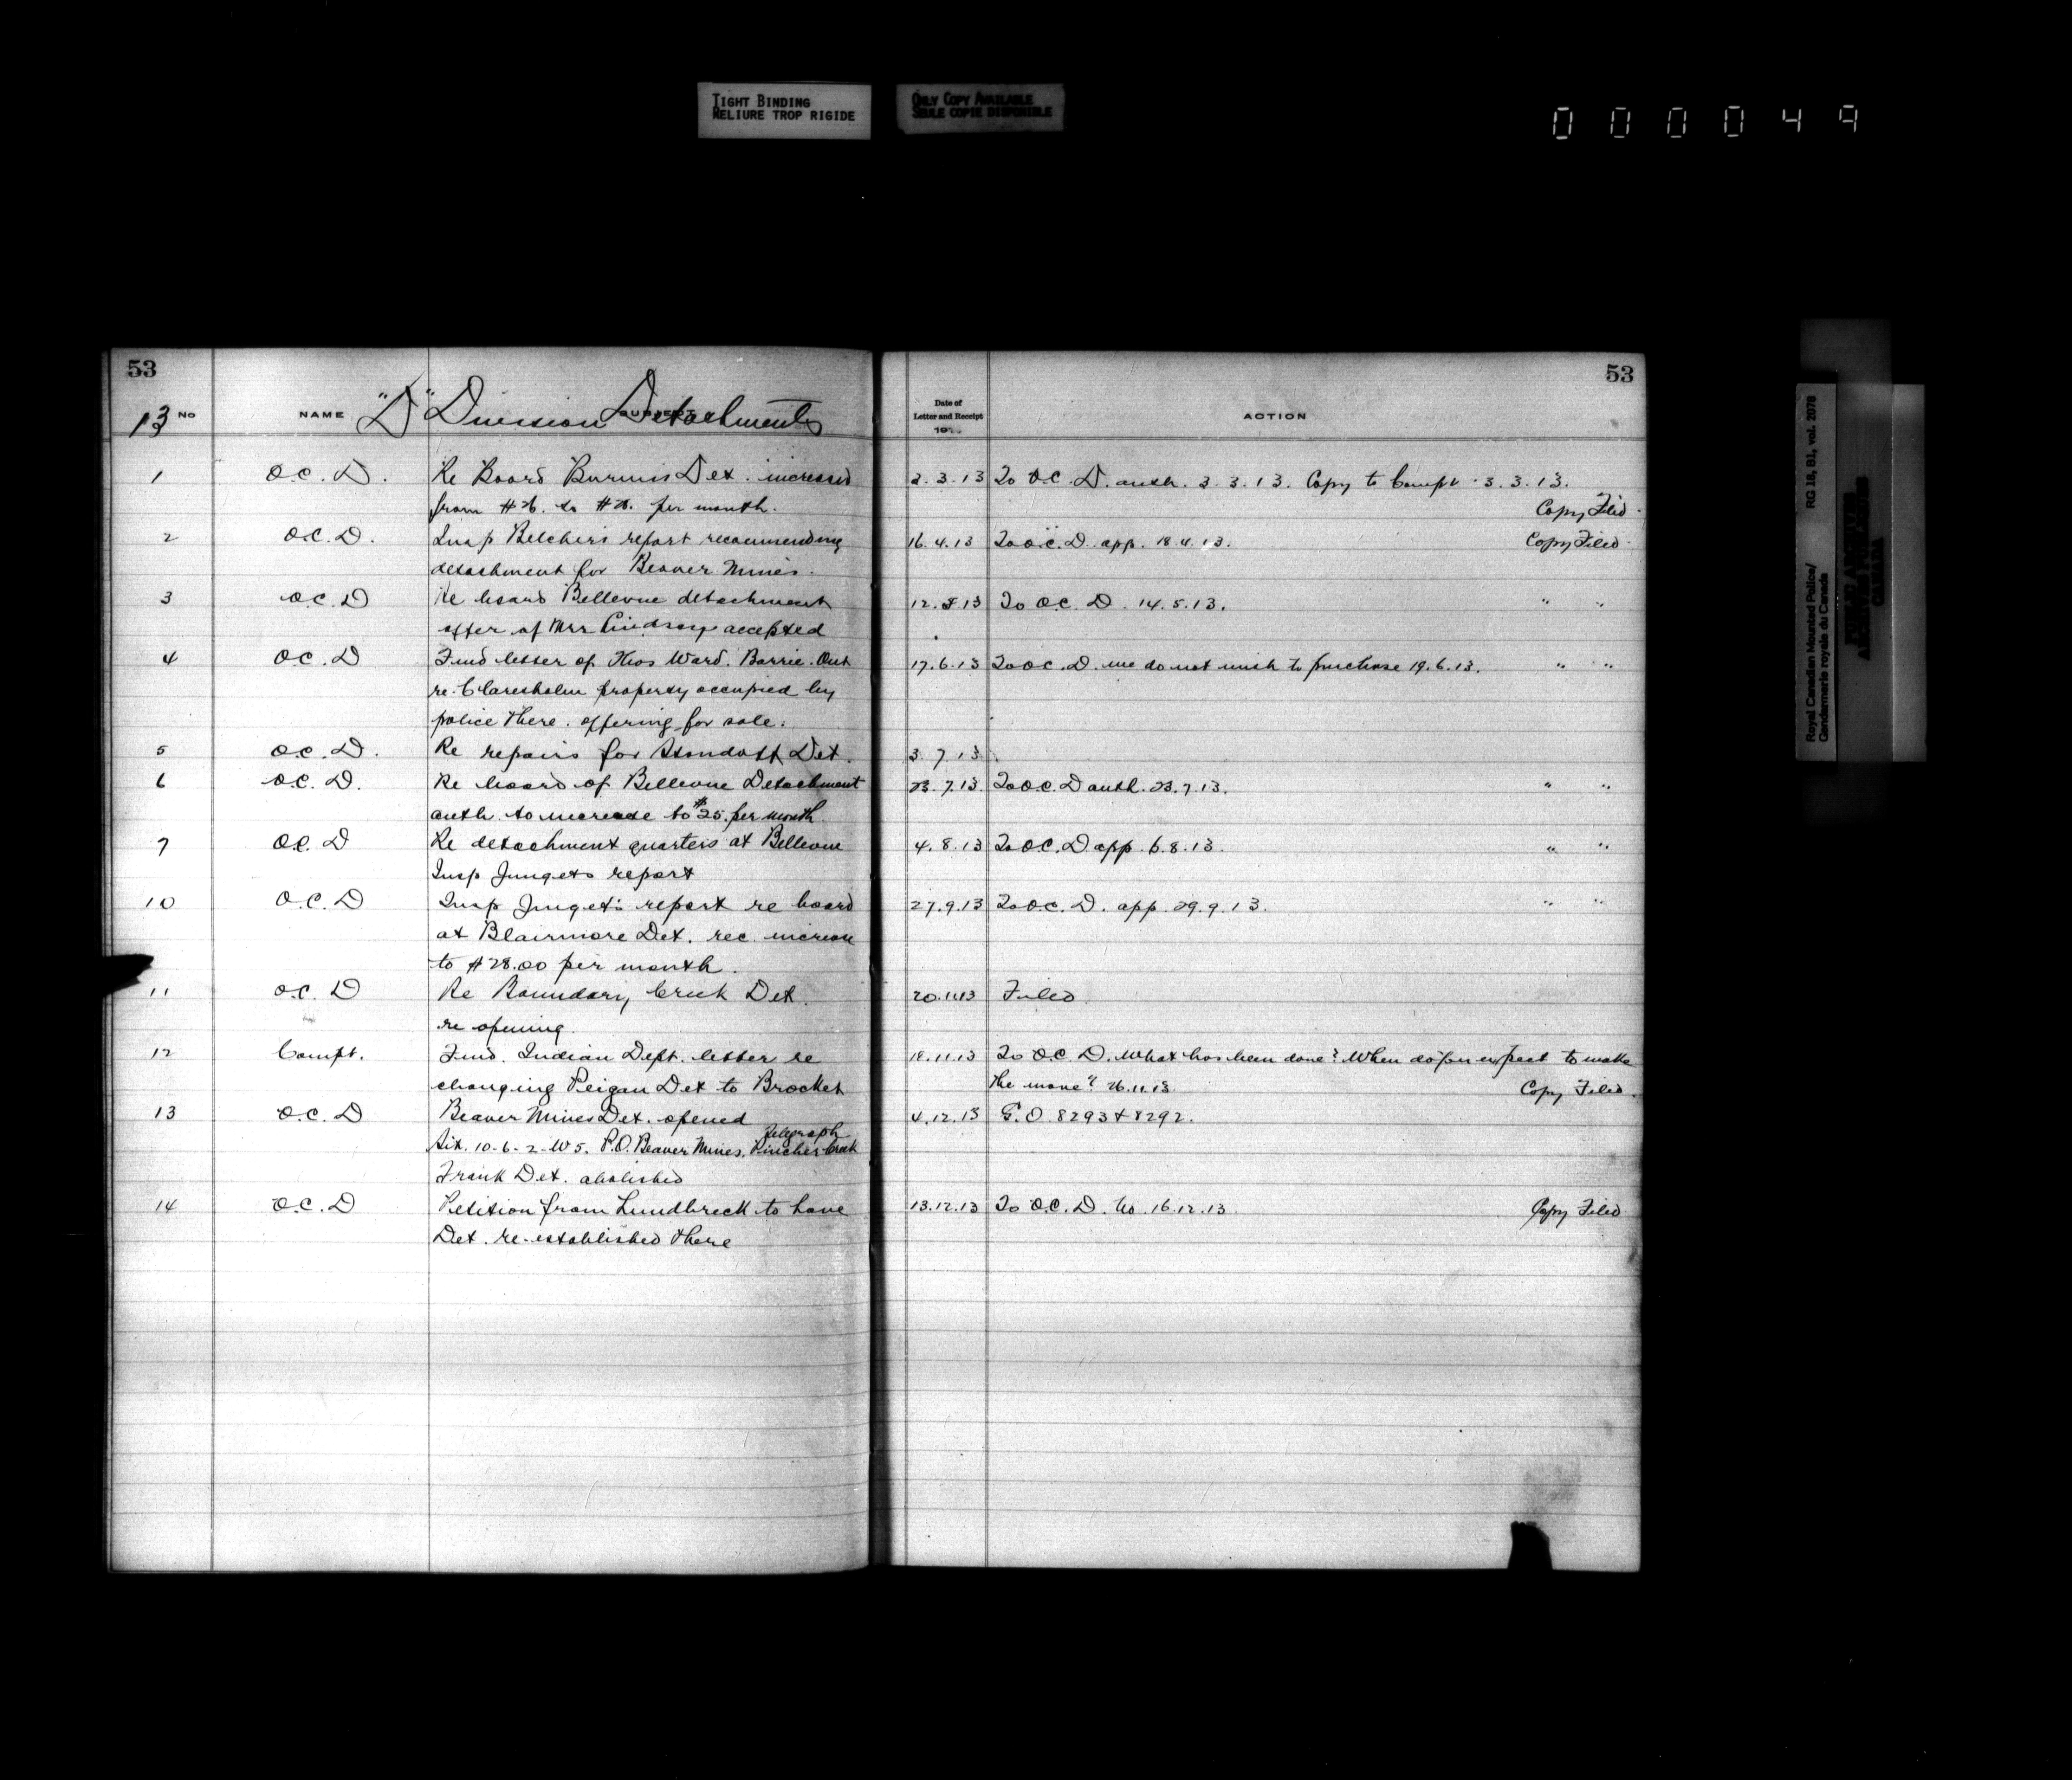 TIGHT BINDING
RELIURE TROP RIGIDE
ONLY COPY AVAILABLE
SEULE COPIE DISPONIBLE
000049
53
13 No NAME "D" Division Detachments
1 O.C. D. Re Board Burmis Det. increased
from $26. to $28. per month.
2 O.C. D. Insp Belcher's report recommending
detachment for Beaver Mines.
3 O.C. D Re board Bellevue detachment
offer of Mrs Lindsay accepted
4 O.C. D Fwd letter of Thos Ward. Barrie. Ont
re. Claresholm property occupied by
police there. offering for sale.
5 O.C. D. Re repairs for Standoff Det.
6 O.C. D. Re board of Bellevue Detachment
auth. to increase to $25. per month
7 O.C. D Re detachment quarters at Bellevue
Insp Junget's report
10 O.C. D Insp Junget's report re board
at Blairmore Det. rec. increase
to $28.00 per month.
11 O.C. D Re Boundary Creek Det.
re opening.
12 Compt. Fwd. Indian Dept. letter re
changing Peigan Det to Brocket
13 O.C. D Beaver Mines Det. opened
Sit. 10-6-2-W5. P.O. Beaver Mines. Telegraph Pincher Creek
Frank Det. abolished
14 O.C. D Petition from Lundbreck to have
Det. re-established there
53
Date of
Letter and Receipt
19
ACTION
3.3.13 To O.C. D. auth. 3.3.13. Copy to Compt. 3.3.13.
Copy Filed.
16.4.13 To O.C. D. app. 18.4.13. Copy Filed.
12.5.13 To O.C. D. 14.5.13. " "
17.6.13 To O.C. D. we do not wish to purchase 19.6.13. " "
3.7.13
23.7.13 To O.C. D auth. 23.7.13. " "
4.8.13 To O.C. D app. 6.8.13. " "
27.9.13 To O.C. D. app. 29.9.13. " "
20.11.13 Filed
18.11.13 To O.C. D. What has been done? When do you expect to make
the move? 26.11.13. Copy Filed.
4.12.13 G.O. 8293 & 8292.
13.12.13 To O.C. D. No. 16.12.13. Copy Filed
Royal Canadian Mounted Police/
Gendarmerie royale du Canada
RG 18, B1, vol. 2078
PUBLIC ARCHIVES
ARCHIVES PUBLIQUES
CANADA